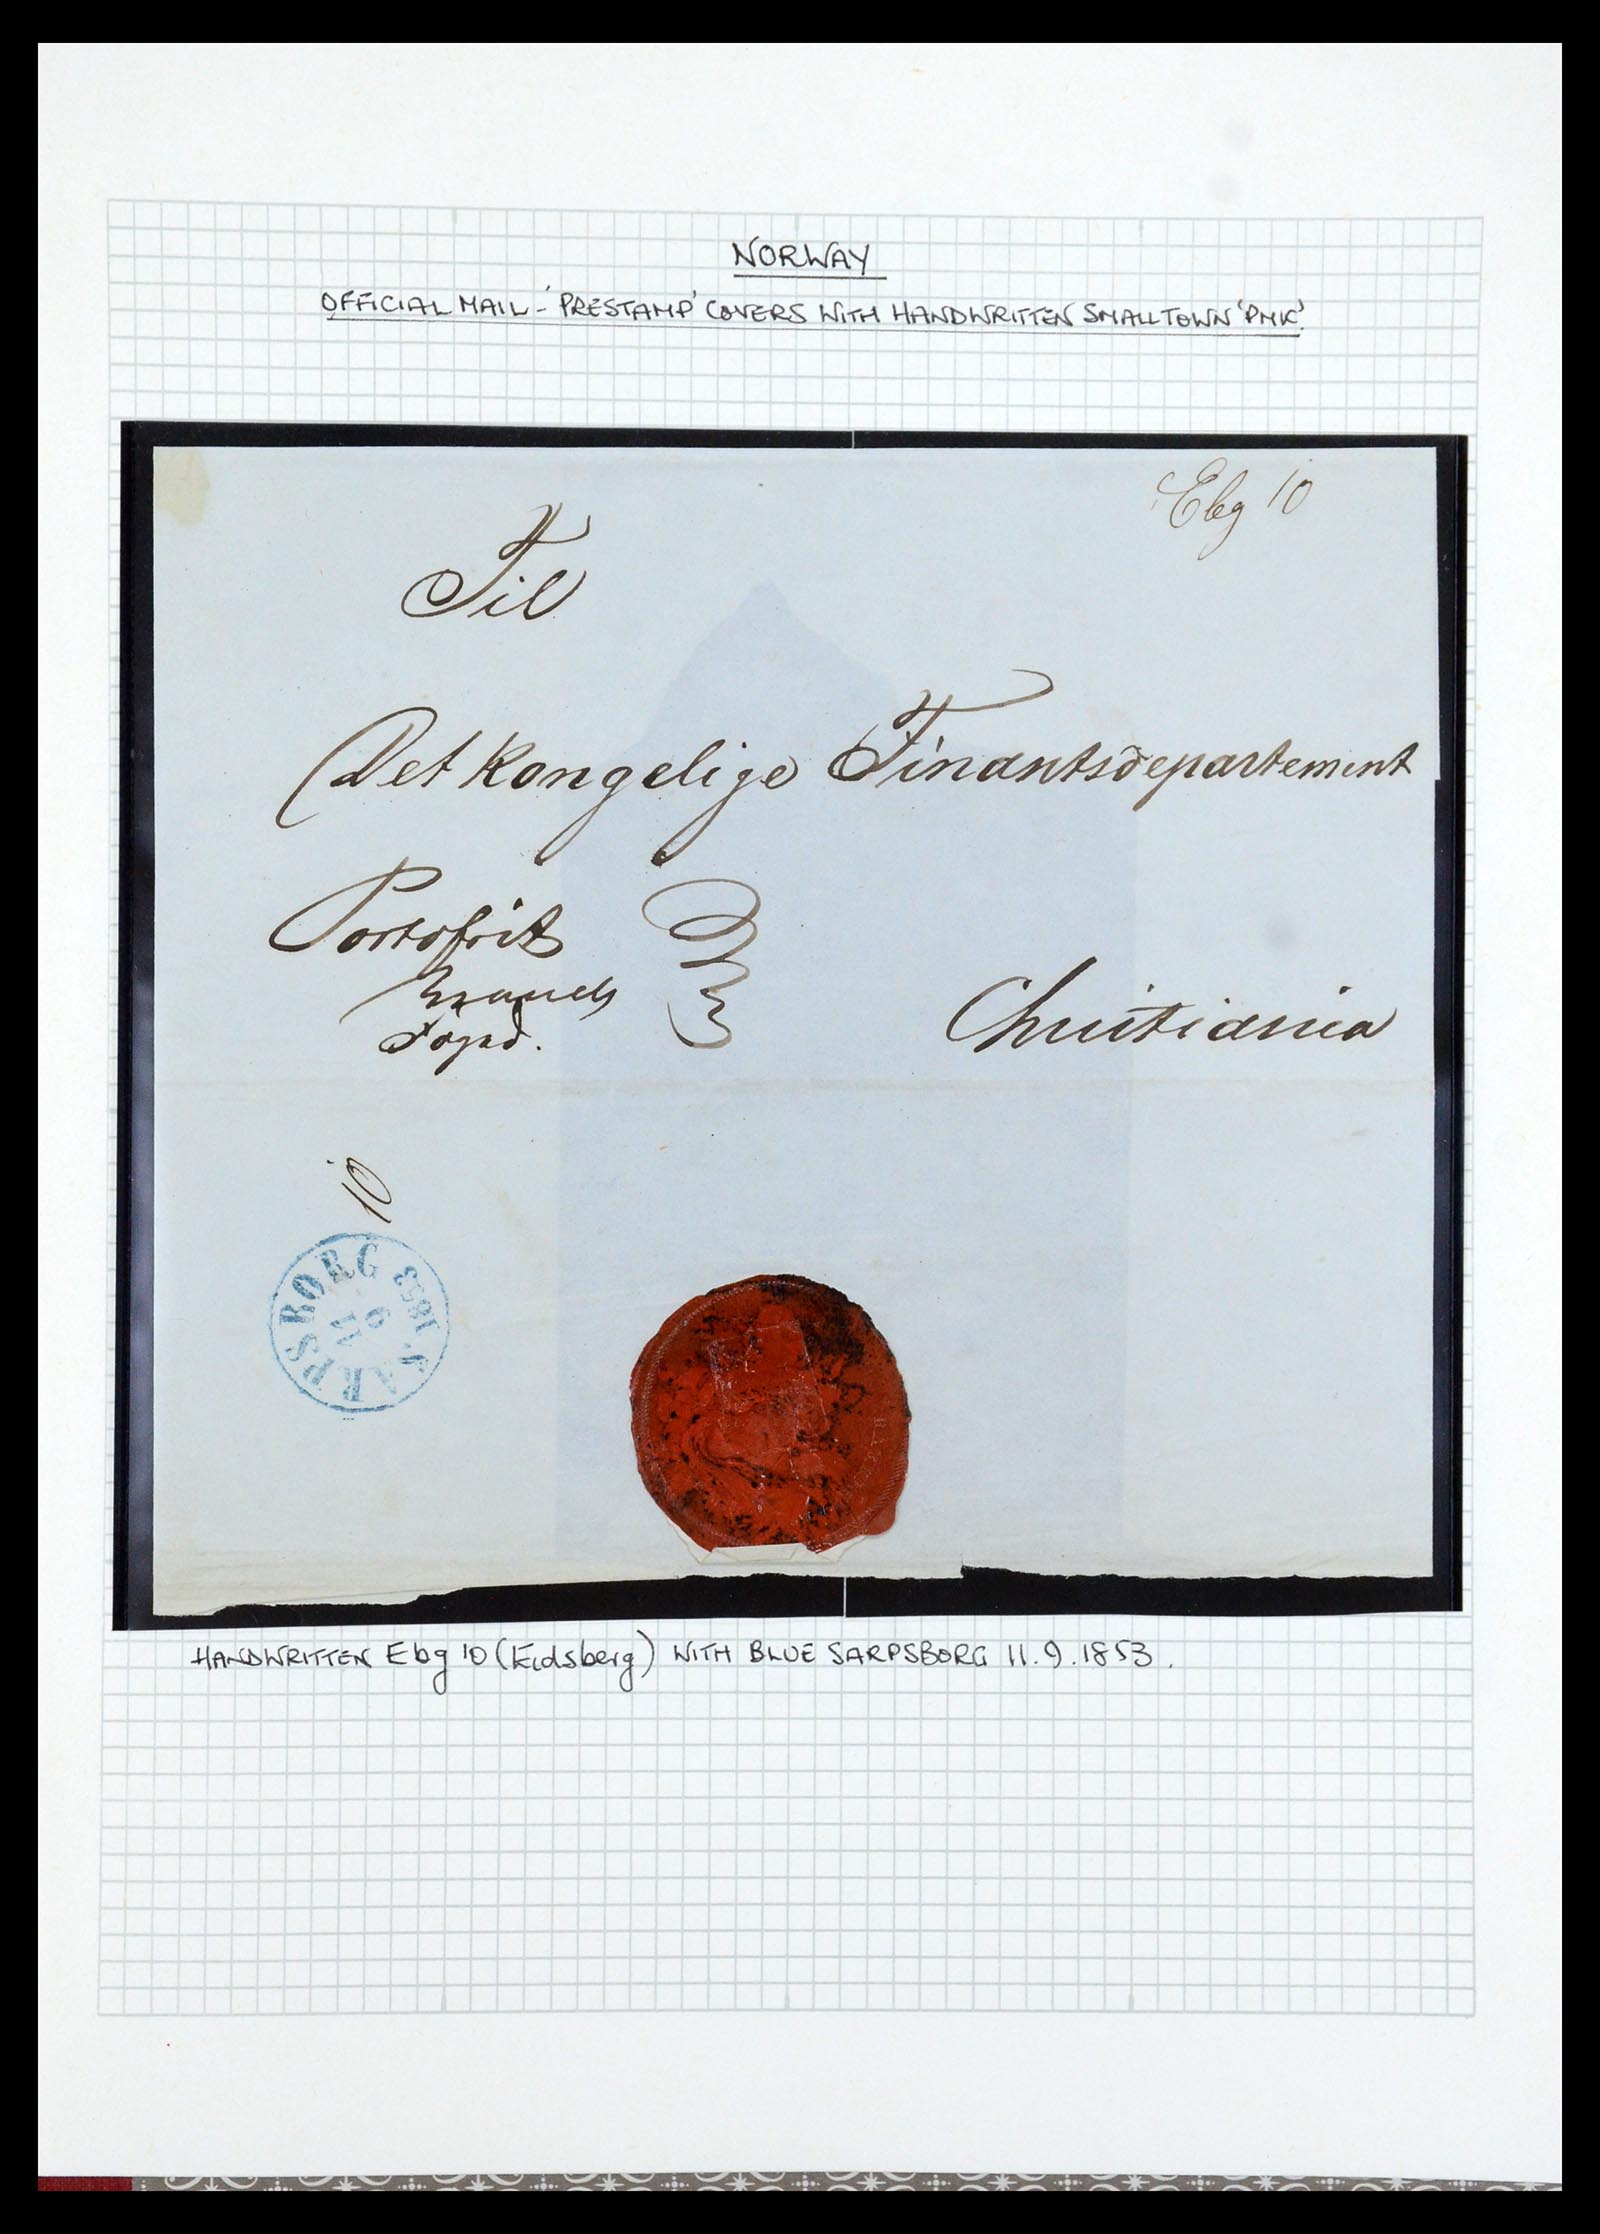 NORWAY
OFFICIAL MAIL - 'PRESTAMP' COVERS WITH HANDWRITTEN SMALL TOWN 'PMK'.
Ebg 10
Til
Det kongelige Finantsdepartement
Portofrit
Foged.
Christiania
10
SARPSBORG 1853
11
9
HANDWRITTEN Ebg 10 (Eidsberg) WITH BLUE SARPSBORG 11.9.1853.